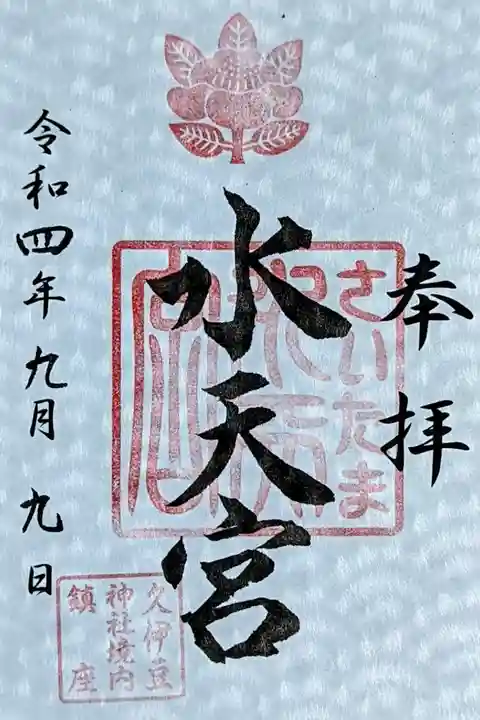 奉拝
さいたま
水天宮
久伊豆
神社境内
鎮座
令和四年九月九日